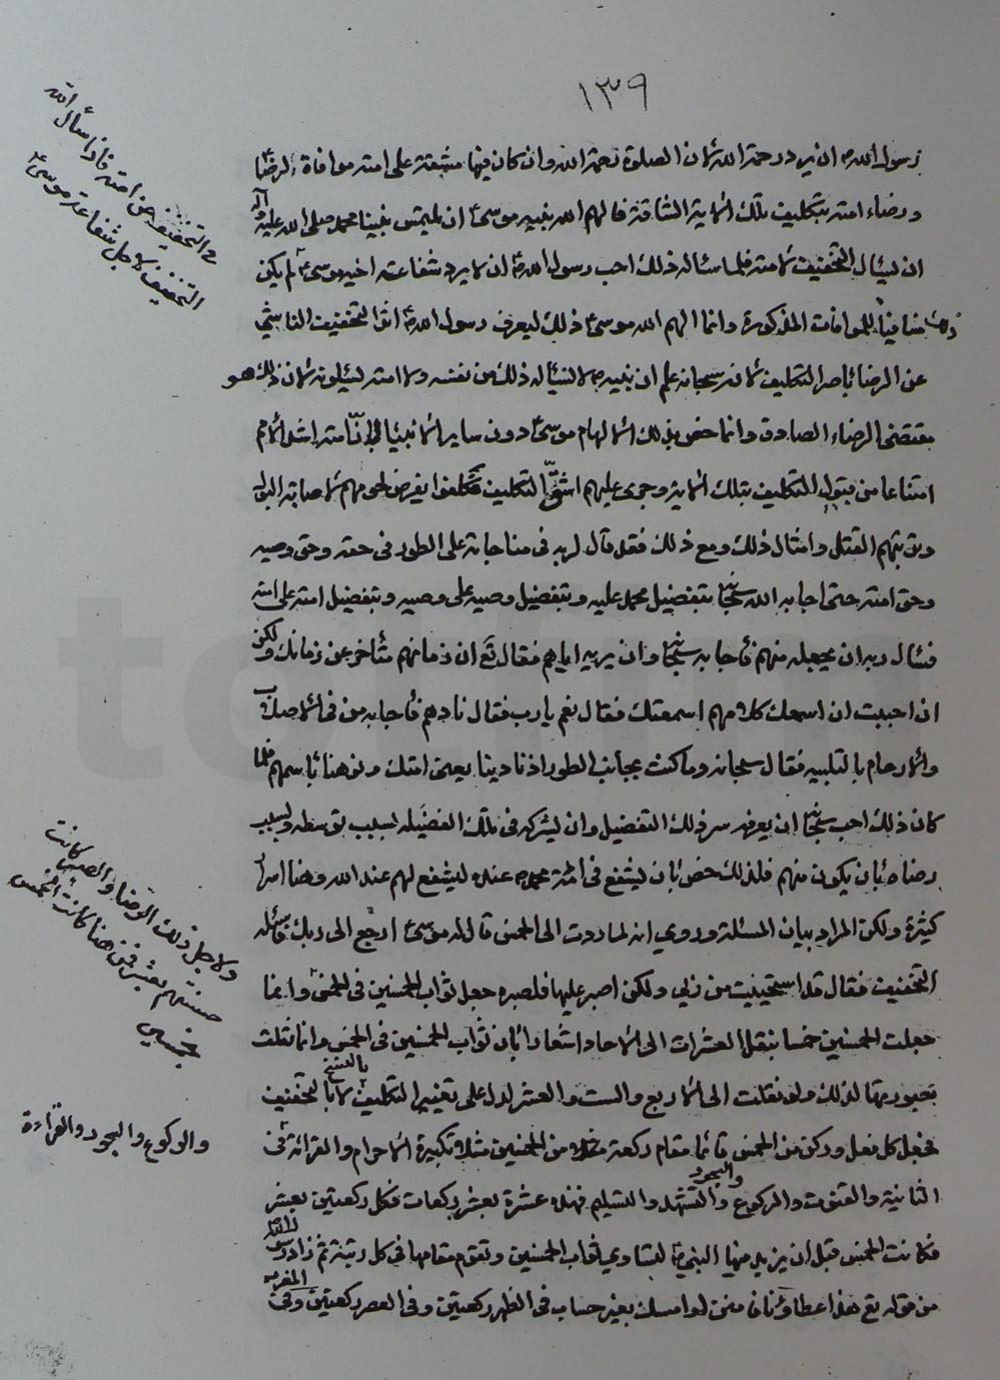 ١٣٩
رسول الله ان يرد رحمة الله لان الصلوة رحمة الله وان كان فيها مشقة على امته موافاة لرضا
ورضاء امته بتكليف تلك الماية الشاقة فالهم الله نبيه موسى ان يلتمس نبينا محمد صلى الله عليه وآله
ان ليسأل التخفيف لامته فلما سئاله ذلك احب رسول الله ان لا يرد شفاعة اخيه موسى لم يكن
منافياً للموافات المذكورة وانما الهم الله موسى ذلك ليعرف رسول الله ان التخفيف الناشي
عن الرضا باصر التكليف لانه سبحانه علم ان نبيه لا يسئاله ذلك من نفسه ولا امته ليسئلونه لان ذلك هو
مقتضى الرضاء الصادق وانما خص بذلك الالهام موسى دون ساير الانبياء لان امته اشد الامم
امتناعا من قبول التكليف بتلك الماية وجرى عليهم اشق التكليف فكلفوا بقرض لحومهم لاصابة البول
وتوبتهم القتل وامثال ذلك ومع ذلك فقد قال لربه في مناجاته على الطور في حقه وحق وصيه
وحق امته حتى اجابه الله سبحانه بتفضيل محمد عليه وبتفضيل وصيه على وصيه وبتفضيل امته على امته
فسئال ربه ان يجعله منهم فأجابه سبحانه وان يريه اياهم فقال تع ان زمانهم متأخر عن زمانك ولكن
ان احببت ان اسمعك كلامهم اسمعتك فقال نعم يا رب فقال نادهم فأجابه من في الاصلاب
والارحام بالتلبية فقال سبحانه وما كنت بجانب الطور اذ نادينا يعنى امتك ونوهنا باسمهم فلما
كان ذلك احب سبحانه ان يعرفه سر ذلك التفضيل وان ليشركه في تلك الفضيله بسبب توسطه وبسبب
رضاه بان يكون منهم فلذلك خص بان ليشفع في امة محمد عنده ليشفع لهم عند الله وهنا اسرار
كثيرة ولكن المراد بيان المسئلة وروي انه لما ردت الى الخمس قال له موسى ارجع الى ربك فاسئله
التخفيف فقال قد استحييت من ربي ولكن اصبر عليها فلصبره جعل ثواب الخمسين في الخمس وانما
جعلت الخمسين خمسا بنقل العشرات الى الاحاد واشعارا بان ثواب الخمسين في الخمس وانما نقلت
بصورتها لذلك ولو نقلت الى الاربع والست والعشر لدل على تغيير التكليف بالنسخ لا بالتخفيف
فجعل كل فعل وركن من الخمس قائما مقام ركعة من الخمسين مثلا تكبيرة الاحرام والقرائة في
الثانية والقنوت والركوع والسجود والتشهد والتسليم فهذه عشرة بعشر ركعات فكل ركعتين بعشر
فكانت الخمس قبل ان يزيد فيها النبي لتساوي ثواب الخمسين وتقوم مقامها في كل رتبة ثم زاد رسول الله
من قوله تع هذا عطاؤنا فامنن او امسك بغير حساب في الظهر ركعتين وفي العصر ركعتين وفي المغرب
في التخفيف عن امته فاذا سأل الله
التخفيف لاجل شفاعة موسى
ولاجل ذلك الرضا والصبر كانت
حسنتهم بعشر فمن هنا كانت الخمس
بخمسين
والركوع والسجود والقراءة